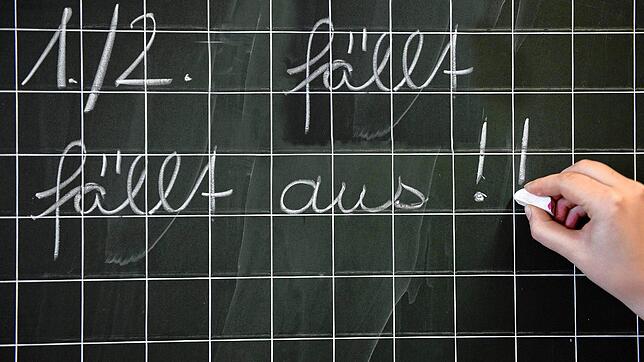 1./2. fällt
fällt aus!!